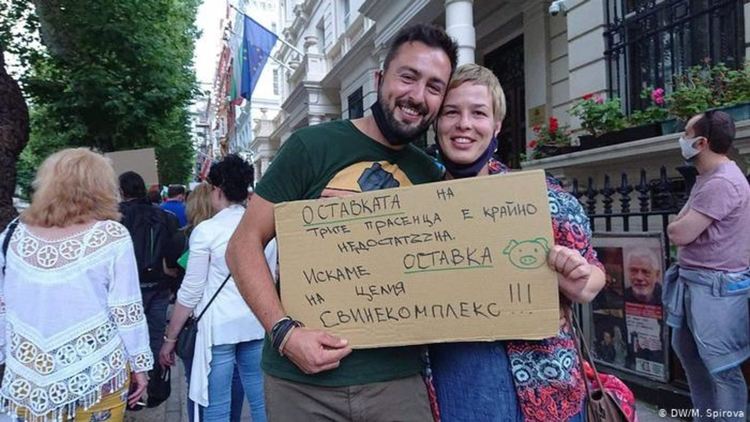 ОСТАВКАТА НА
ТРИТЕ ПРАСЕНЦА Е КРАЙНО
НЕДОСТАТЪЧНА.
ИСКАМЕ ОСТАВКА
НА ЦЕЛИЯ
СВИНЕКОМПЛЕКС!!!
© DW/M. Spirova